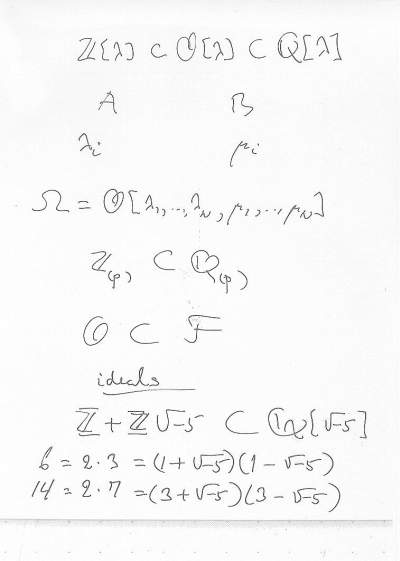 ℤ[λ] ⊂ 𝒪[λ] ⊂ ℚ[λ]
A B
λᵢ μᵢ
Ω = 𝒪[λ₁, ..., λ_N, μ₁, ..., μ_N]
ℤ₍ₚ₎ ⊂ ℚ₍ₚ₎
𝒪 ⊂ ℱ
ideals
ℤ + ℤ√-5 ⊂ ℚ[√-5]
6 = 2·3 = (1+√-5)(1-√-5)
14 = 2·7 = (3+√-5)(3-√-5)